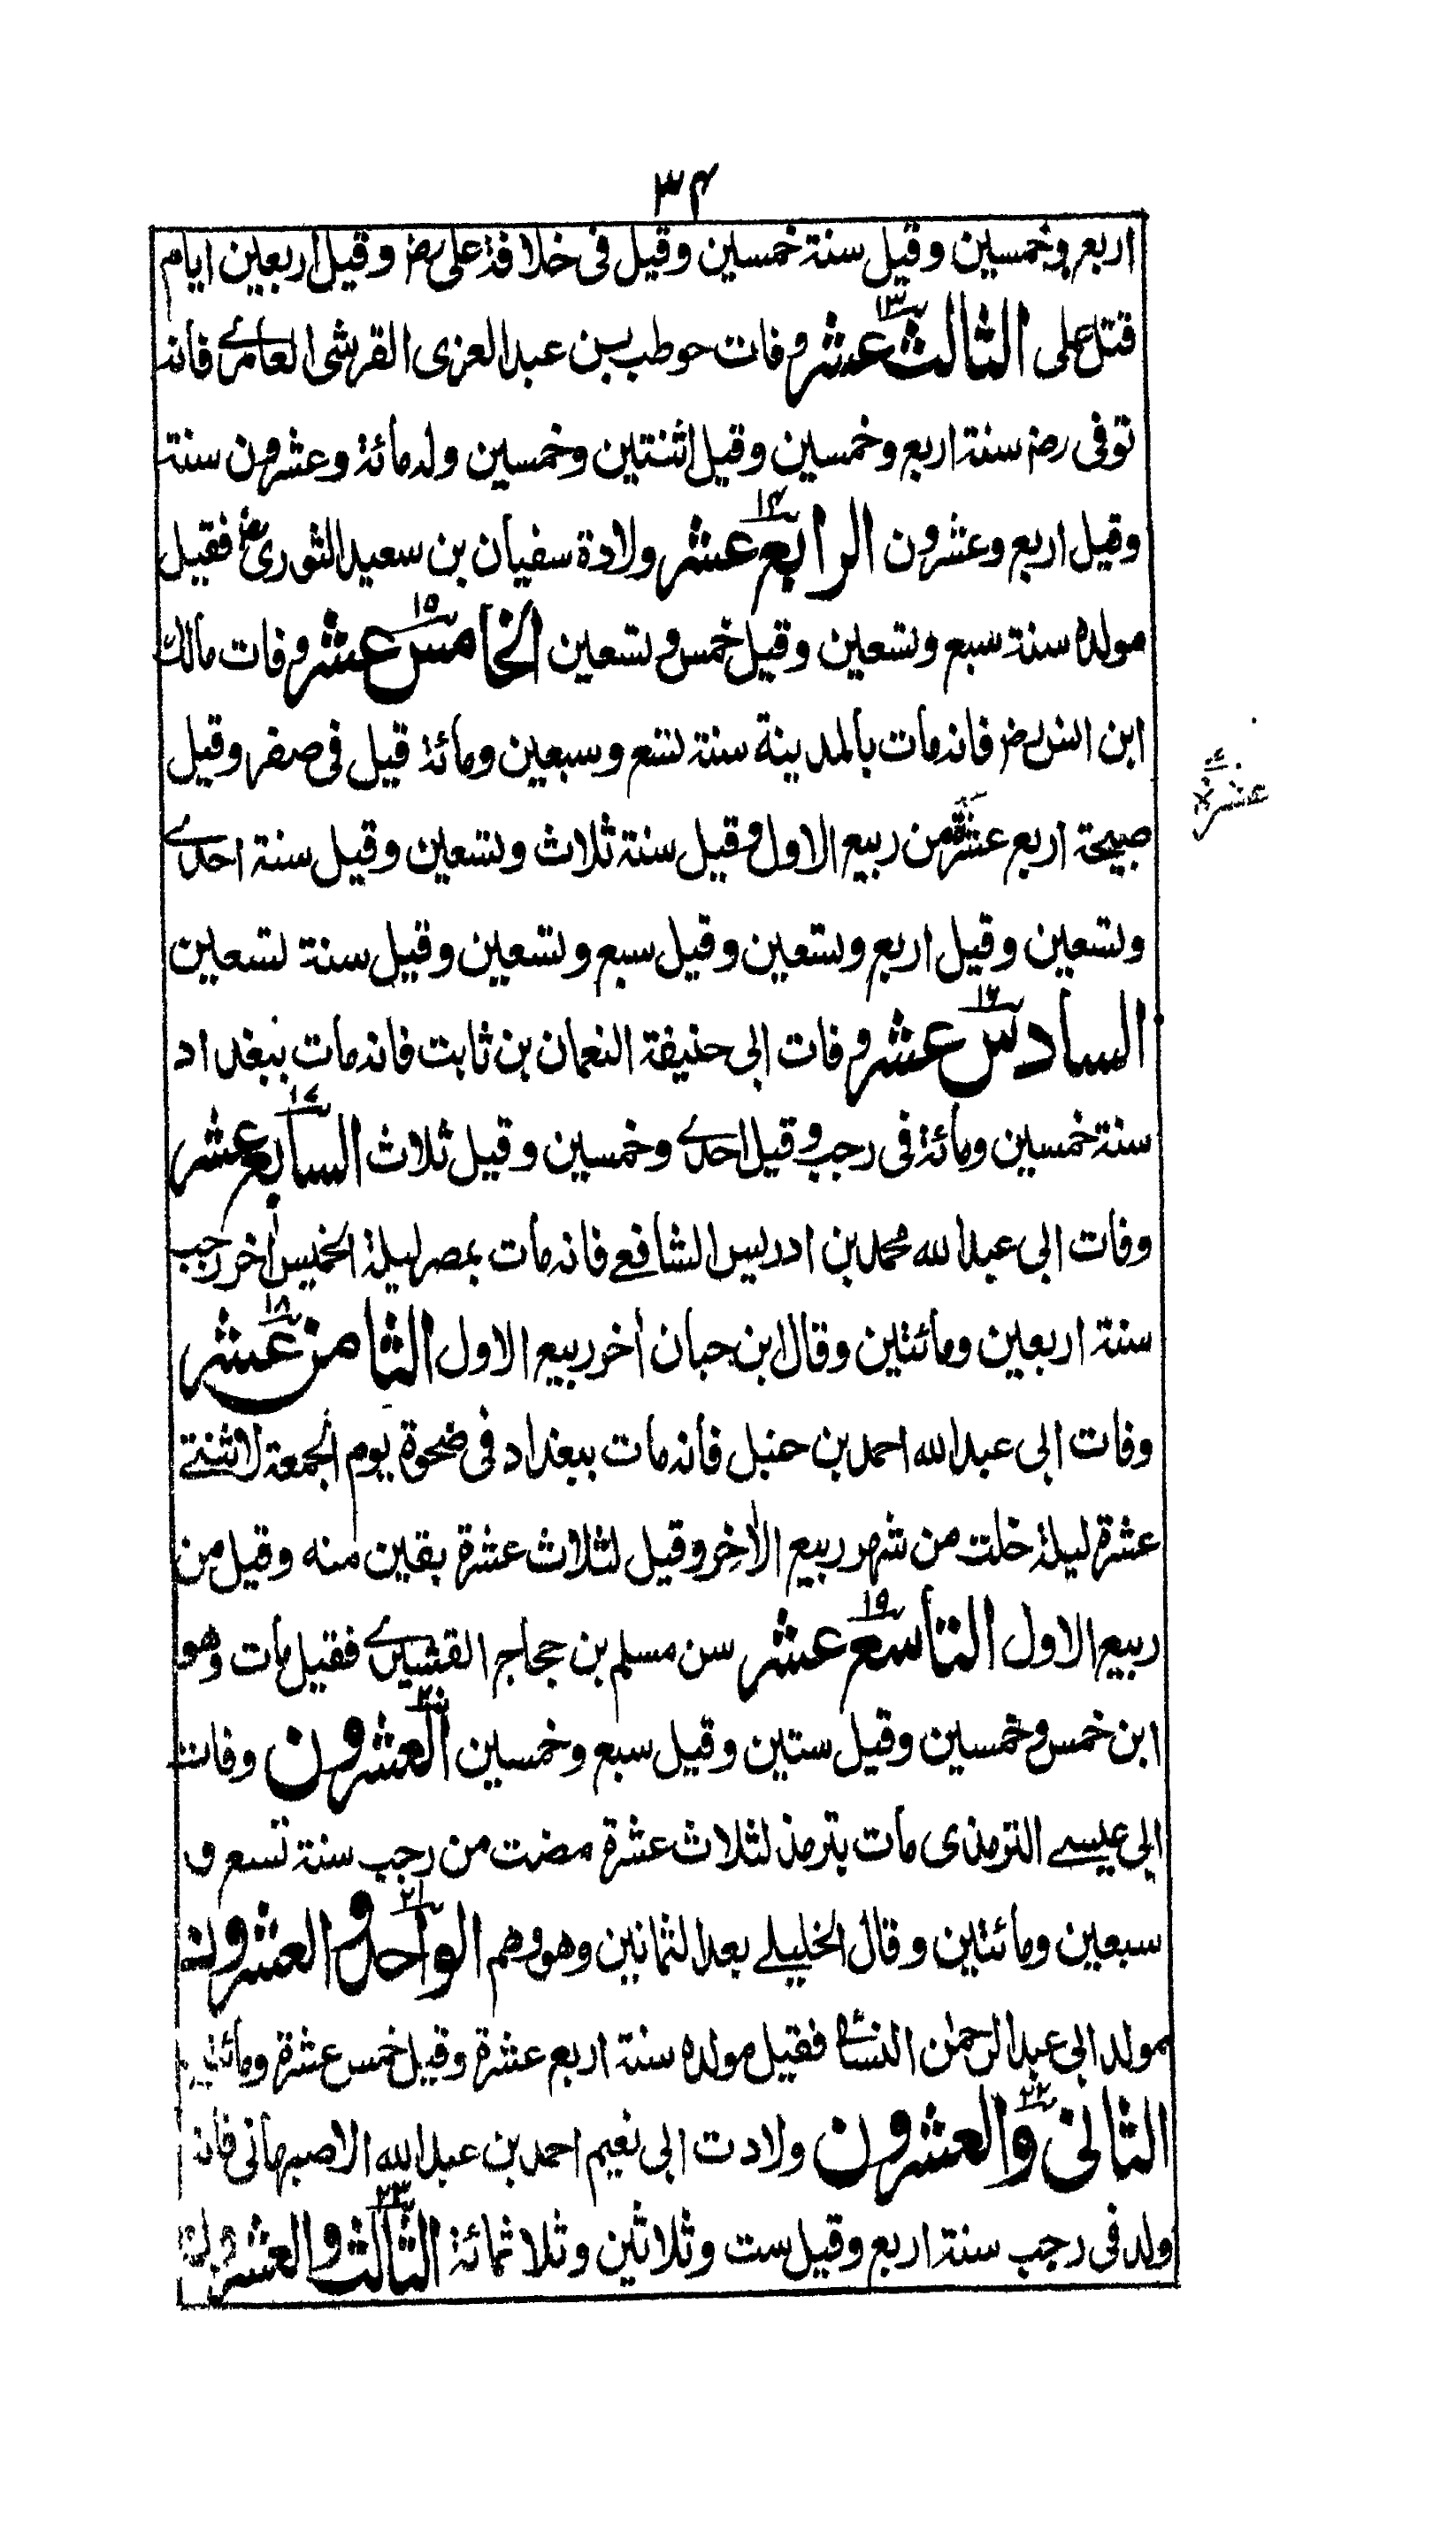 ۳۴
اربع وخمسین وقیل سنة خمسین وقیل فی خلافة علی رض وقیل اربعین ایام
قتل علی الثالث عشر ۱۳ وفات حوطب بن عبد العزی القرشی العامرے فانه
توفی رض سنة اربع وخمسین وقیل اثنتین وخمسین وله مائة وعشرون سنة
وقیل اربع وعشرون الرابع عشر ۱۴ ولادة سفیان بن سعید الثوری رض فقیل
مولده سنة سبع وتسعین وقیل خمس وتسعین الخامس عشر ۱۵ وفات مالك
ابن انس رض فانه مات بالمدینة سنة تسع وسبعین ومائة قیل فی صفر وقیل
صبیحة اربع عشرة من ربیع الاول وقیل سنة ثلاث وتسعین وقیل سنة احدے
عشرة
وتسعین وقیل اربع وتسعین وقیل سبع وتسعین وقیل سنة تسعین
السادس عشر ۱۶ وفات ابی حنیفة النعمان بن ثابت فانه مات ببغداد
سنة خمسین ومائة فی رجب وقیل احدے وخمسین وقیل ثلاث السابع عشر ۱۷
وفات ابی عبد الله محمد بن ادریس الشافعے فانه مات بمصر لیلة الخمیس اٰخر رجب
سنة اربعین ومائتین وقال ابن حبان اٰخر ربیع الاول الثامن عشر ۱۸
وفات ابی عبد الله احمد بن حنبل فانه مات ببغداد فی ضحوة یوم الجمعة لاثنتے
عشرة لیلة خلت من شهر ربیع الاٰخر وقیل لثلاث عشرة بقین منه وقیل من
ربیع الاول التاسع عشر ۱۹ سن مسلم بن حجاج القشیرے فقیل مات وهو
ابن خمس وخمسین وقیل ستین وقیل سبع وخمسین العشرون ۲۰ وفات
ابی عیسے الترمذی مات بترمذ لثلاث عشرة مضت من رجب سنة تسع و
سبعین ومائتین وقال الخلیلے بعد الثمانین وهو وهم الواحد والعشرون ۲۱
مولد ابی عبد الرحمٰن النسائے فقیل مولده سنة اربع عشرة وقیل خمس عشرة ومائتین
الثانی والعشرون ۲۲ ولادت ابی نعیم احمد بن عبد الله الاصبهانی فانه
ولد فی رجب سنة اربع وقیل ست وثلاثین وثلاثمائة الثالث والعشرون ۲۳